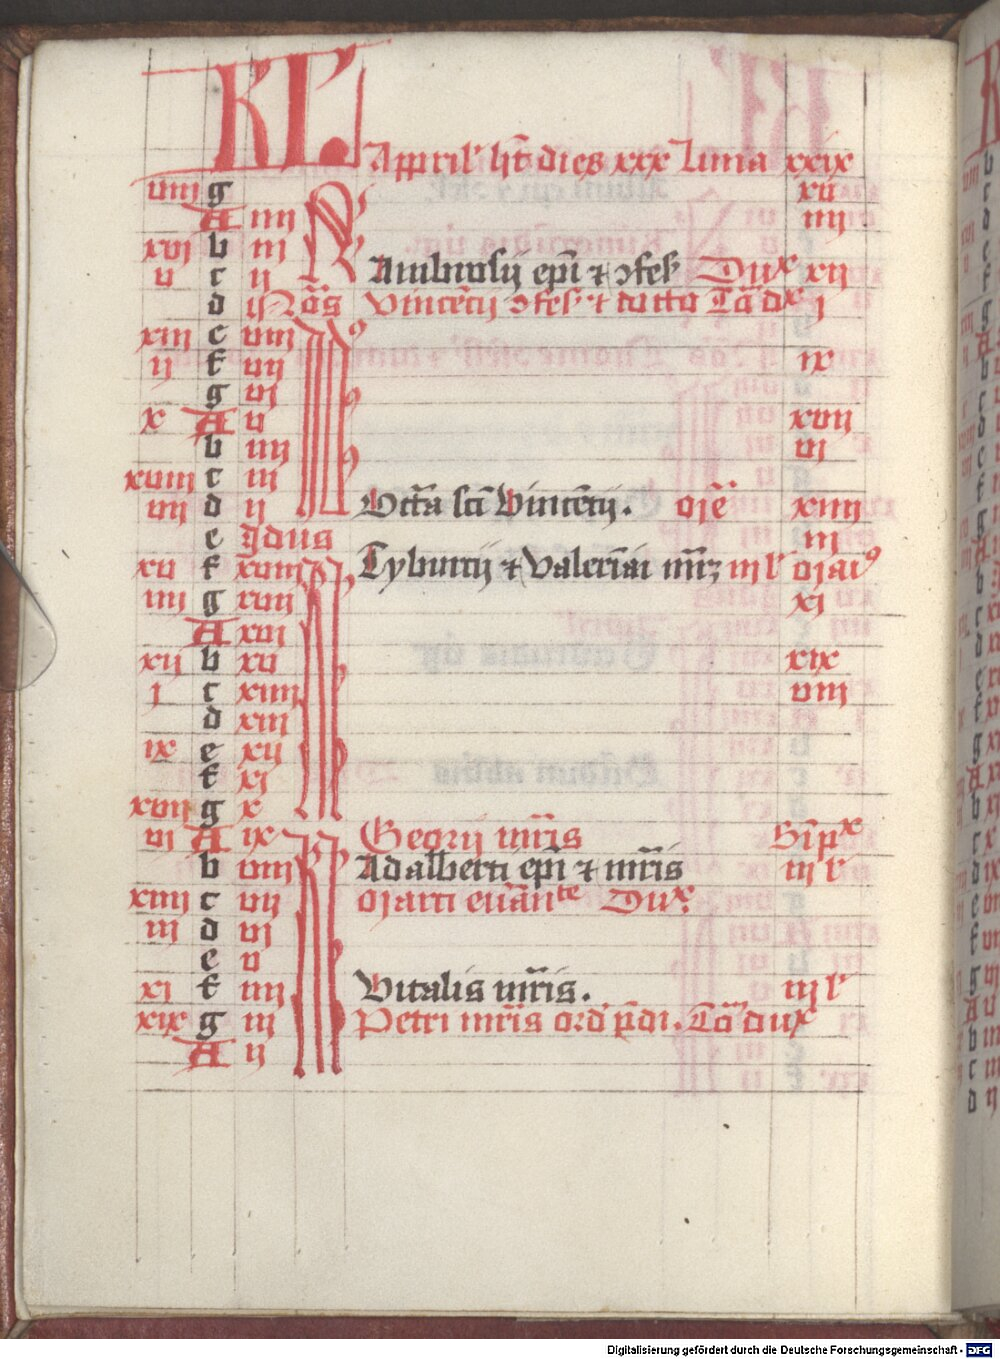 KL Appril' hēt dies xxx Luna xxix
viii g xvi
A iiii iiii
xvi b iii
v c ii Ambrosij epī ⁊ ɔfess' Dux xij
d ij Noās Vincētij ɔfess' ⁊ docto Tō dx j
xiii e viii
ij f vii ix
g vi
x A v xvii
b iiii vi
xviii c iii
vii d ij Octā scī Vincētij . oīē xiiii
e Jdus iii
xv f xviii Tyburtij ⁊ Valeriāi mr̄m iij l'
iiii g xvii xj
A xvi
xij b xv xix
j c xiiii viii
d xiii
ix e xij
f xj
xvii g x
vi A ix Georij mr̄is Sīpx
b viii Adalberti epī ⁊ mr̄is iij l'
xiiii c vii Marci euānte Dux
iii d vi
e v
xj f iiii Vitalis mr̄is . iij l'
xix g iii Petri mr̄is ord' p̄di . Tō dux
A ij
Digitalisierung gefördert durch die Deutsche Forschungsgemeinschaft - DFG